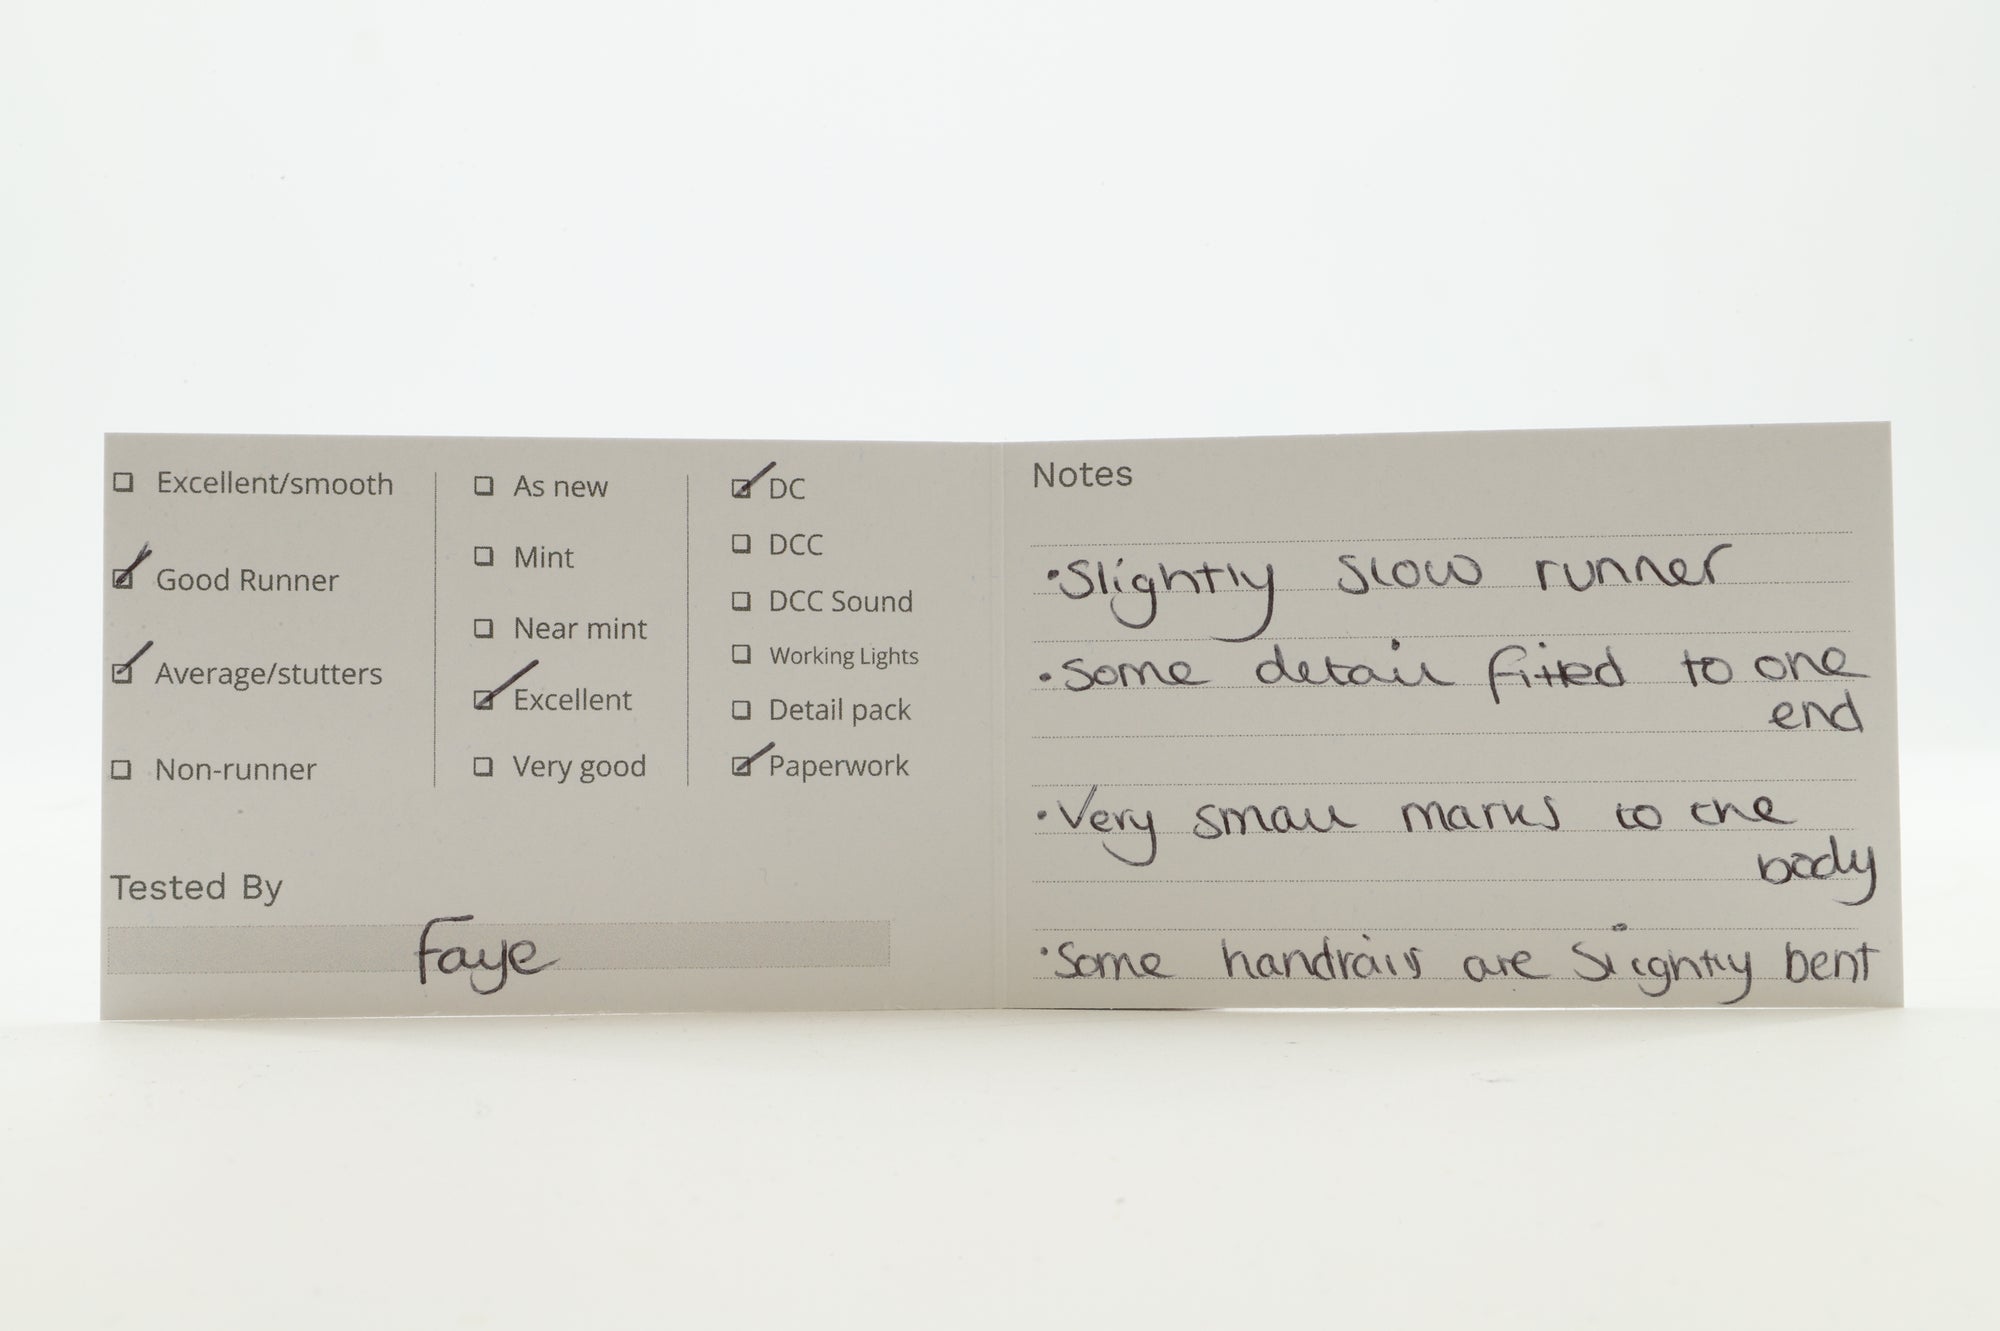 Excellent/smooth
Good Runner
Average/stutters
Non-runner
As new
Mint
Near mint
Excellent
Very good
DC
DCC
DCC Sound
Working Lights
Detail pack
Paperwork
Tested By
Faye
Notes
•Slightly slow runner
•Some detail fitted to one
end
•Very small marks to the
body
•Some handrails are slightly bent